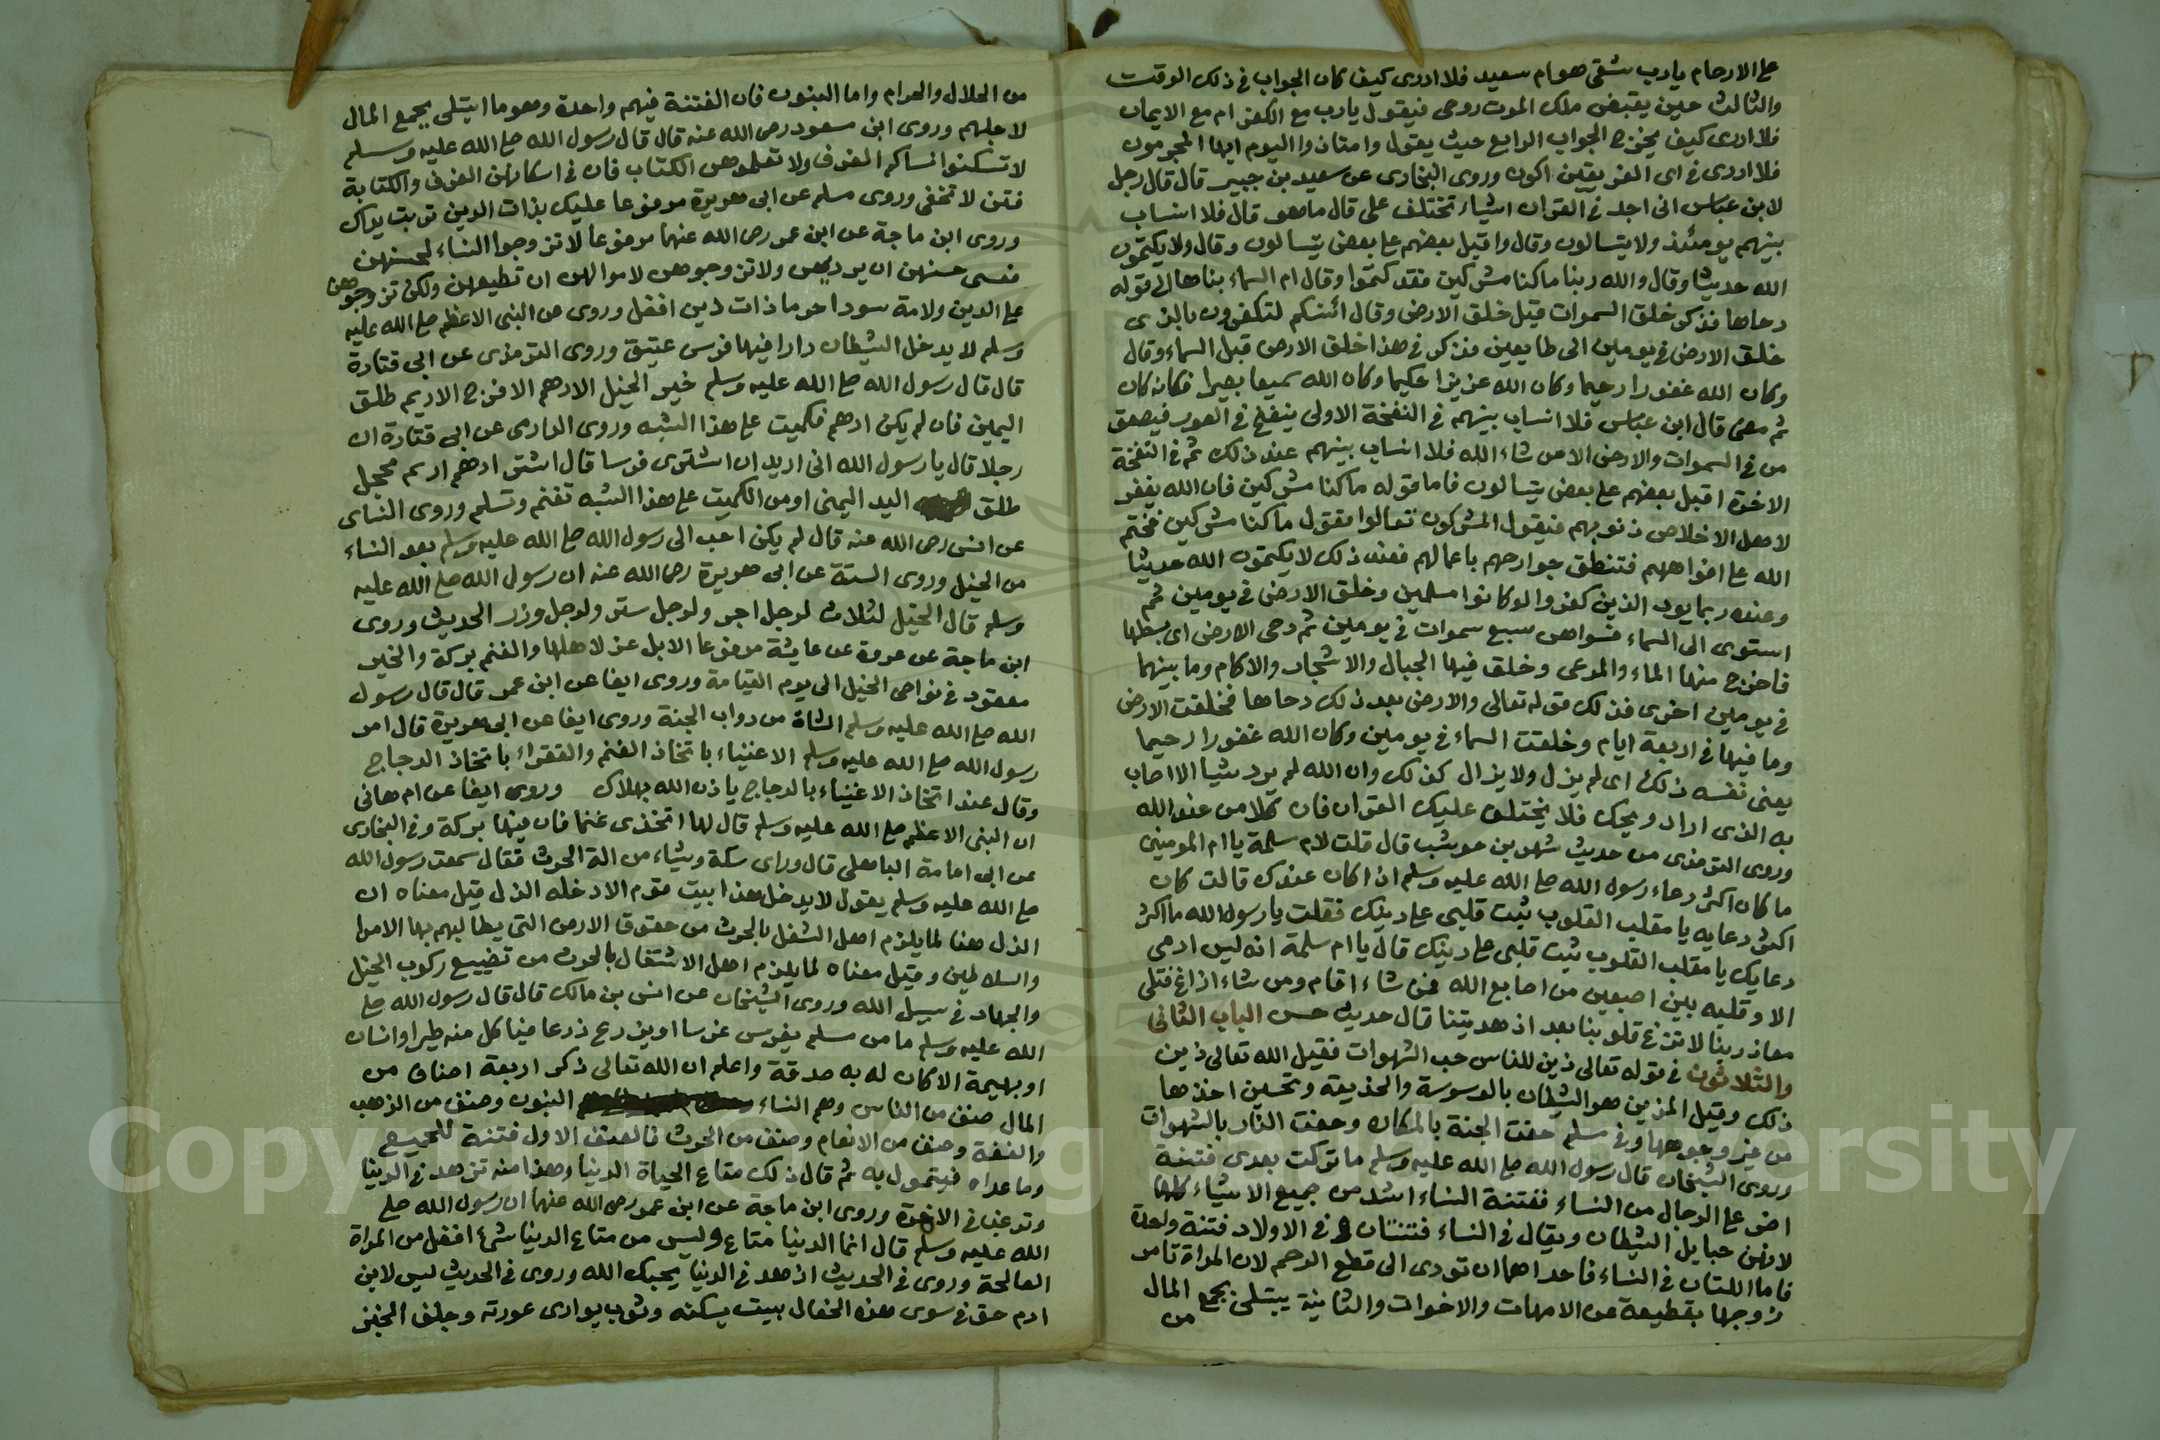 على الارحام يارب شقى هو ام سعيد فلا ادرى كيف كان الجواب فى ذلك الوقت
والثالث حين يقبض ملك الموت روحى فيقول يارب مع الكفر ام مع الايمان
فلا ادرى كيف يخرج الجواب الرابع حيث يقول وامتازوا اليوم ايها المجرمون
فلا ادرى فى اى الفريقين اكون وروى البخارى عن سعيد بن جبير قال قال رجل
لابن عباس انى اجد فى القران اشياء تختلف على قال ما هو قال فلا انساب
بينهم يومئذ ولا يتسالون وقال واقبل بعضهم على بعض يتسالون وقال ولا يكتمون
الله حديثا وقال والله ربنا ما كنا مشركين فقد كتموا وقال ام السماء بناها الى قوله
دحاها فذكر خلق السموات قبل خلق الارض وقال ائنكم لتكفرون بالذى
خلق الارض فى يومين الى طايعين فذكر فى هذا خلق الارض قبل السماء وقال
وكان الله غفورا رحيما وكان الله عزيزا حكيما وكان الله سميعا بصيرا فكانه كان
ثم مضى قال ابن عباس فلا انساب بينهم فى النفخة الاولى ينفخ فى الصور فيصعق
من فى السموات والارض الا من شاء الله فلا انساب بينهم عند ذلك ثم فى النفخة
الاخرة اقبل بعضهم على بعض يتسالون فاما قوله ما كنا مشركين فان الله يغفر
لاهل الاخلاص ذنوبهم فيقول المشركون تعالوا نقول ما كنا مشركين فختم
الله على افواههم فتنطق جوارحهم باعمالهم فعند ذلك لا يكتمون الله حديثا
وعنده ربما يود الذين كفروا لو كانوا مسلمين وخلق الارض فى يومين ثم
استوى الى السماء فسواهن سبع سموات فى يومين ثم دحى الارض اى بسطها
فاخرج منها الماء والمرعى وخلق فيها الجبال والاشجار والاكام وما بينهما
فى يومين اخرى فذلك قوله تعالى والارض بعد ذلك دحاها فخلقت الارض
وما فيها فى اربعة ايام وخلقت السماء فى يومين وكان الله غفورا رحيما
يعنى نفسه ذلك اى لم يزل ولا يزال كذلك وان الله لم يرد شيا الا اصاب
به الذى اراد ويحك فلا يختلف عليك القران فان كلا من عند الله
وروى الترمذى من حديث شهر بن حوشب قال قلت لام سلمة يا ام المومنين
ما كان اكثر دعاء رسول الله صلى الله عليه وسلم اذا كان عندك قالت كان
اكثر دعايه يا مقلب القلوب ثبت قلبى على دينك فقلت يا رسول الله ما اكثر
دعايك يا مقلب القلوب ثبت قلبى على دينك قال يا ام سلمة انه ليس ادمى
الا وقلبه بين اصبعين من اصابع الله فمن شاء اقام ومن شاء ازاغ فتلى
معاذ ربنا لا تزغ قلوبنا بعد اذ هديتنا قال حديث حسن الباب الثانى
والثلاثون فى قوله تعالى زين للناس حب الشهوات فقيل الله تعالى زين
ذلك وقيل المزين هو الشيطان بالوسوسة والخديعة وتحسين اخذها
من غير وجوهها وفى مسلم حفت الجنة بالمكاره وحفت النار بالشهوات
وروى الشيخان قال رسول الله صلى الله عليه وسلم ما تركت بعدى فتنة
اضر على الرجال من النساء ففتنة النساء اشد من جميع الاشياء كلها
لانهن حبايل الشيطان ويقال فى النساء فتنتان وفى الاولاد فتنة واحدة
فاما اللتان فى النساء فاحداهما ان تودى الى قطع الرحم لان المراة تامر
زوجها بقطيعة عن الامهات والاخوات والثانية يبتلى بجمع المال
من
من الحلال والحرام واما البنون فان الفتنة فيهم واحدة وهو ما ابتلى بجمع المال
لاجلهم وروى ابن مسعود رضى الله عنه قال قال رسول الله صلى الله عليه وسلم
لا تسكنوا نساكم الغرف ولا تعلموهن الكتاب فان فى اسكانهن الغرف والكتابة
فتن لا تخفى وروى مسلم عن ابى هريرة مرفوعا عليك بذات الدين تربت يداك
وروى ابن ماجة عن ابن عمر رضى الله عنهما مرفوعا لا تزوجوا النساء لحسنهن
فعسى حسنهن ان يرديهن ولا تزوجوهن لاموالهن ان تطيعهن ولكن تزوجوهن
على الدين ولامة سودا خرما ذات دين افضل وروى عن النبى الاعظم صلى الله عليه
وسلم لا يدخل الشيطان دارا فيها فرس عتيق وروى الترمذى عن ابى قتادة
قال قال رسول الله صلى الله عليه وسلم خير الخيل الادهم الاقرح الارثم طلق
اليمين فان لم يكن ادهم فكميت على هذا الشبه وروى الدارمى عن ابى قتادة ان
رجلا قال يا رسول الله انى اريد ان اشترى فرسا قال اشتر ادهم ارثم محجل
طلق اليد اليمنى او من الكميت على هذا الشبه تغنم وتسلم وروى النساى
عن انس رضى الله عنه قال لم يكن احب الى رسول الله صلى الله عليه وسلم بعد النساء
من الخيل وروى الستة عن ابى هريرة رضى الله عنه ان رسول الله صلى الله عليه
وسلم قال الخيل لثلاث لرجل اجر ولرجل ستر ولرجل وزر الحديث وروى
ابن ماجة عن عروة عن عايشة مرفوعا الابل عز لاهلها والغنم بركة والخير
معقود فى نواصى الخيل الى يوم القيامة وروى ايضا عن ابن عمر قال قال رسول
الله صلى الله عليه وسلم الشاة من دواب الجنة وروى ايضا عن ابى هريرة قال امر
رسول الله صلى الله عليه وسلم الاغنياء باتخاذ الغنم والفقراء باتخاذ الدجاج
وقال عند اتخاذ الاغنياء بالدجاج ياذن الله بهلاك وروى ايضا عن ام هانى
ان النبى الاعظم صلى الله عليه وسلم قال لها اتخذى غنما فان فيها بركة وفى البخارى
عن ابى امامة الباهلى قال وراى سكة وشياء من الة الحرث فقال سمعت رسول الله
صلى الله عليه وسلم يقول لا يدخل هذا بيت قوم الا دخله الذل قيل معناه ان
الذل هنا لما يلزم اهل الشغل بالحرث من حقوق الارض التى يطالبهم بها الامرا
والسلاطين وقيل معناه لما يلزم اهل الاشتغال بالحرث من تضييع ركوب الخيل
والجهاد فى سبيل الله وروى الشيخان عن انس بن مالك قال قال رسول الله صلى
الله عليه وسلم ما من مسلم يغرس غرسا او يزرع زرعا فياكل منه طيرا وانسان
او بهيمة الا كان له به صدقة واعلم ان الله تعالى ذكر اربعة اصناف من
المال صنف من الناس وهم النساء البنون وصنف من الذهب
والفضة وصنف من الانعام وصنف من الحرث فالصنف الاول فتنة للجميع
وما عداه فيتمول به ثم قال ذلك متاع الحياة الدنيا وهذا منه تزهد فى الدنيا
وترغيب فى الاخرة وروى ابن ماجة عن ابن عمر رضى الله عنهما ان رسول الله صلى
الله عليه وسلم قال انما الدنيا متاع وليس من متاع الدنيا شىء افضل من المراة
الصالحة وروى فى الحديث ازهد فى الدنيا يحبك الله وروى فى الحديث ليس لابن
ادم حق فى سوى هذه الخصال بيت يسكنه وثوب يوارى عورته وجلف الخبز